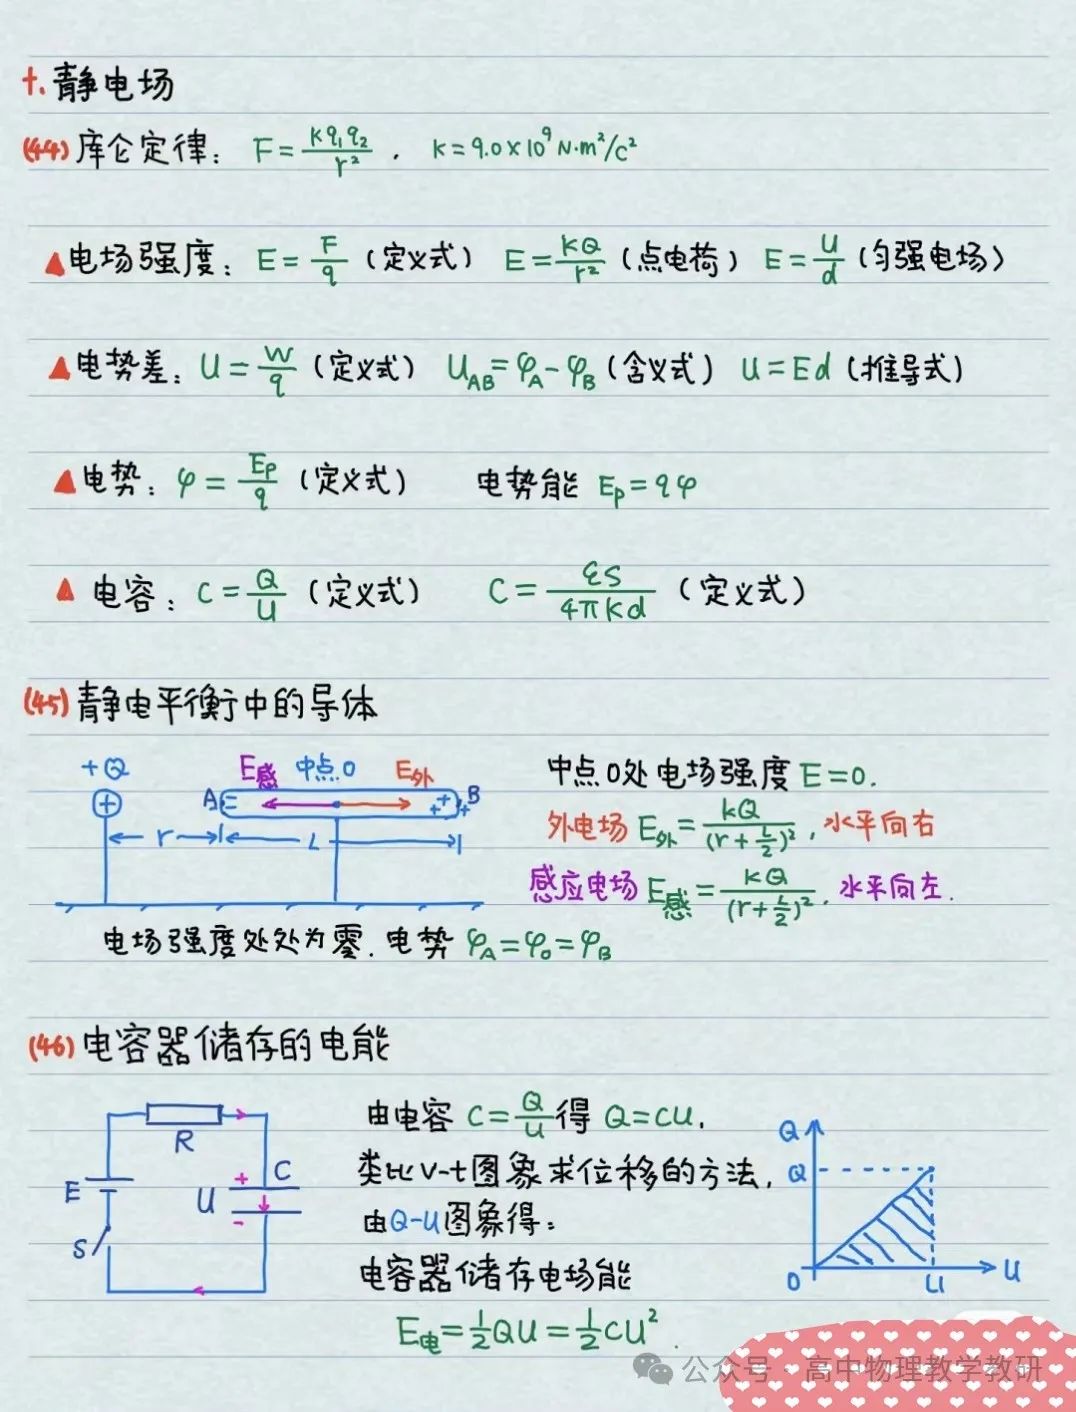 十.静电场
(44)库仑定律: F=kq₁q₂/r². k=9.0×10⁹N·m²/C²
▲电场强度: E=F/q (定义式) E=kQ/r² (点电荷) E=U/d (匀强电场)
▲电势差: U=W/q (定义式) U_AB=φ_A-φ_B (含义式) U=Ed (推导式)
▲电势: φ=Ep/q (定义式) 电势能 Ep=qφ
▲电容: C=Q/U (定义式) C=εS/4πkd (定义式)
(45)静电平衡中的导体
+Q E感 中点.O E外
A B
r L
中点O处电场强度E=0.
外电场 E外=kQ/(r+L/2)², 水平向右
感应电场 E感=kQ/(r+L/2)², 水平向左.
电场强度处处为零.电势 φ_A=φ_O=φ_B
(46)电容器储存的电能
R
E U C
+
-
S
由电容 C=Q/U得 Q=CU.
类比v-t图象求位移的方法,
由Q-U图象得:
电容器储存电场能
E电=½QU=½CU².
Q
Q
O U U
公众号·高中物理教学教研